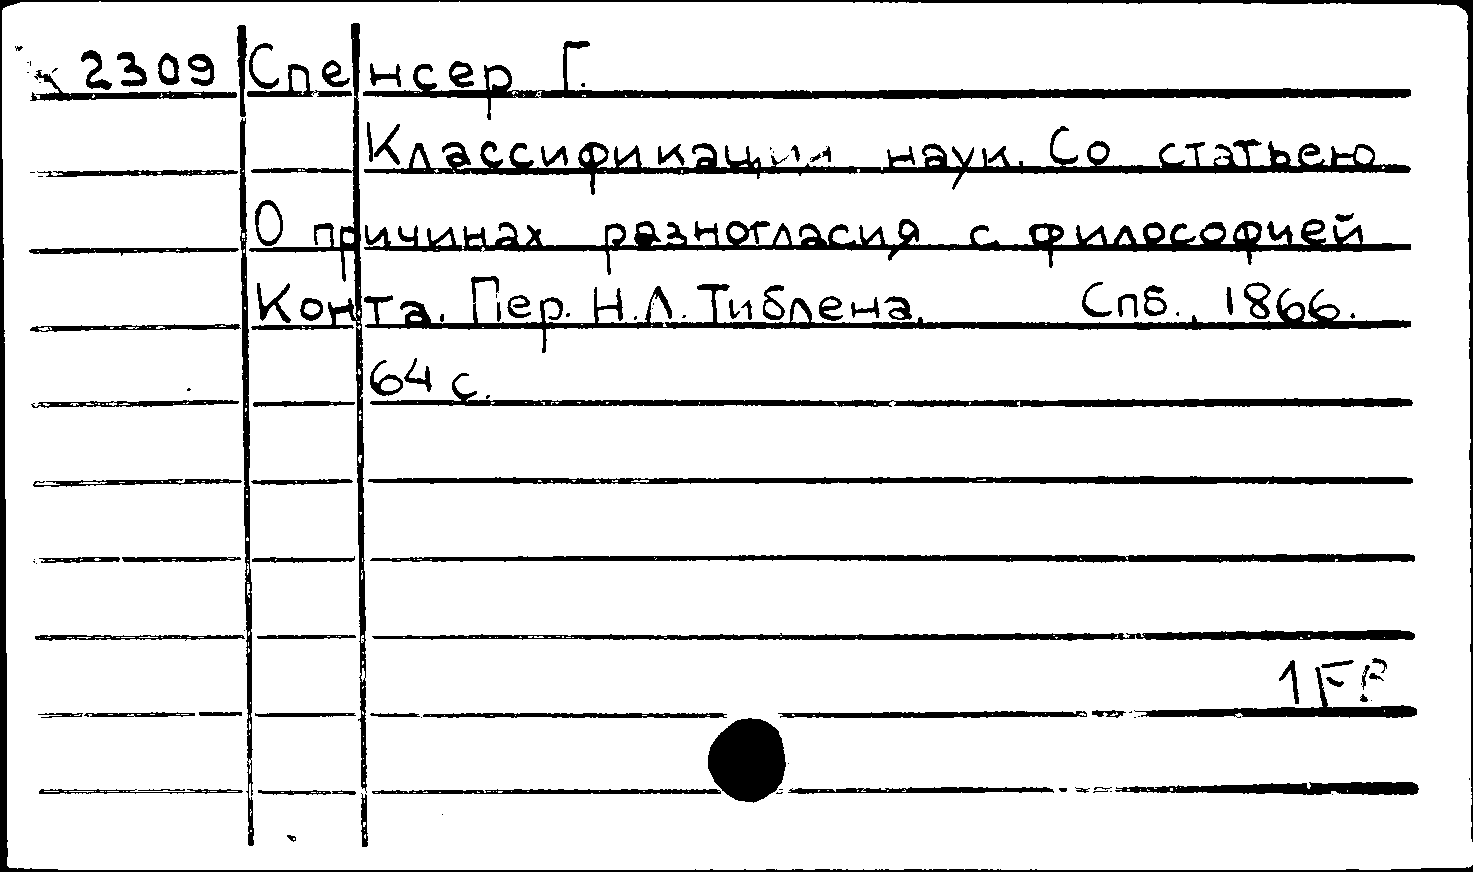 2309 Спенсер Г.
Классификации наук. Со статьею
О причинах разногласия с философией
Конта. Пер. Н.Л. Тиблена. Спб., 1866.
64 с.